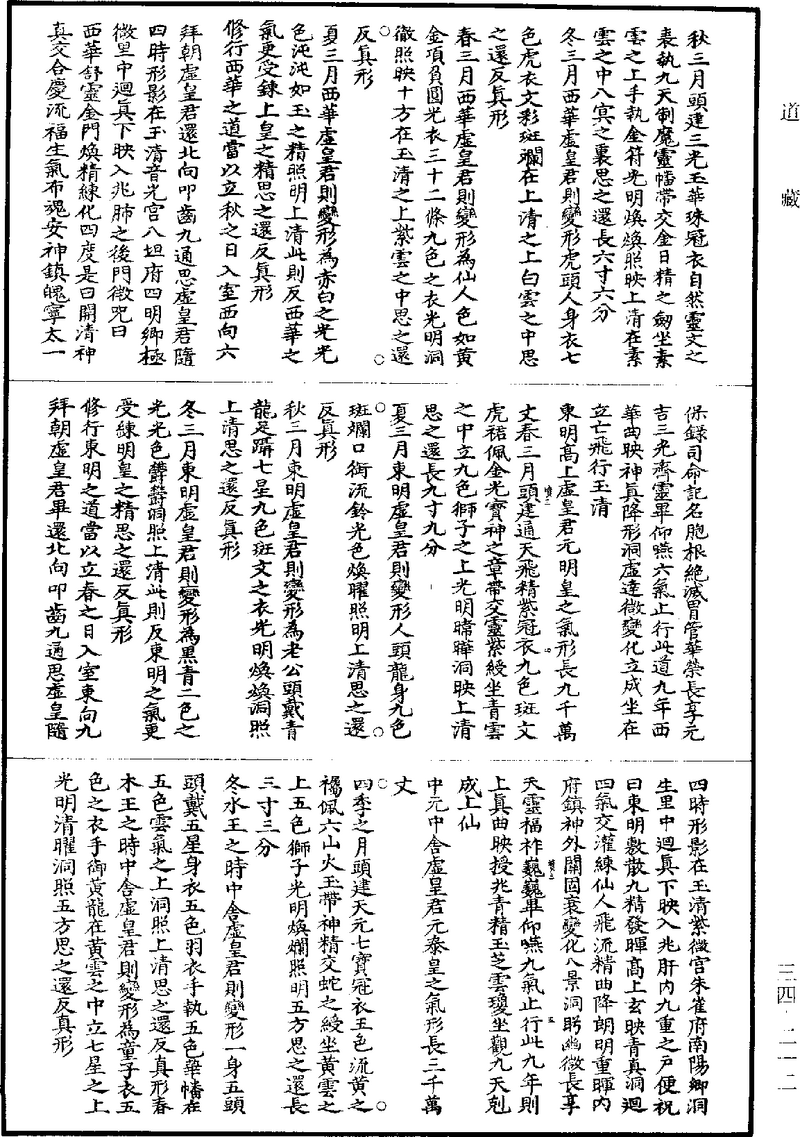 道藏
秋三月頭建三光玉華珠冠衣自然靈文之
表執九天制魔靈幡帶交金日精之劒坐素
雲之上手執金符光明煥煥照映上清在素
雲之中八冥之裏思之還長六寸六分
冬三月西華虛皇君則變形虎頭人身衣七
色虎衣文彩斑斕在上清之上白雲之中思
之還反真形
春三月西華虛皇君則變形為仙人色如黄
金項負圓光衣三十二條九色之衣光明洞
徹照映十方在玉清之上紫雲之中思之還
反真形
夏三月西華虛皇君則變形為赤白之光光
色沌沌如玉之精照明上清此則反西華之
氣更受鍊上皇之精思之還反真形
修行西華之道當以立秋之日入室西向六
拜朝虛皇君還北向叩齒九通思虛皇君隨
四時形影在玉清音光宫八坦府四明鄉極
微里中迴真下映入兆肺之後門微咒曰
西華舒靈金門煥精練化四度是曰開清神
真交合慶流福生氣布魂安神鎮魄寧太一
保錄司命記名胞根絶滅胃管華榮長享元
吉三光齊靈畢仰嚥六氣止行此道九年西
華曲映神真降形洞虛達微變化立成坐在
立亡飛行玉清
東明高上虛皇君元明皇之氣形長九千萬
丈春三月頭建通天飛精紫冠衣九色斑文
虎裙佩金光寶神之章帶交靈紫綬坐青雲
之中立九色獅子之上光明暐曄洞映上清
思之還長九寸九分
夏三月東明虛皇君則變形人頭龍身九色
斑斕口銜流鈴光色煥耀照明上清思之還
反真形
秋三月東明虛皇君則變形為老公頭戴青
龍足躡七星九色斑文之衣光明煥煥洞照
上清思之還反真形
冬三月東明虛皇君則變形為黒青二色之
光光色欝欝洞照上清此則反東明之氣更
受練明皇之精思之還反真形
修行東明之道當以立春之日入室東向九
拜朝虛皇君畢還北向叩齒九通思虛皇隨
四時形影在玉清紫微宫朱雀府南陽鄉洞
生里中迴真下映入兆肝内九重之戸便祝
曰東明敷散九精發暉高上玄映青真洞迴
四氣交灌練仙人飛流精曲降朗明重暉内
府鎮神外關固衰變化八景洞眄幽微長享
天靈福祚巍巍畢仰嚥九氣止行此九年則
上真曲映授兆青精玉芝雲瓊坐觀九天剋
成上仙
中元中舍虛皇君元泰皇之氣形長三千萬
丈
四季之月頭建天元七寶冠衣王色流黄之
襡佩六山火玉帶神精交蛇之綬坐黄雲之
上五色獅子光明煥爛照明五方思之還長
三寸三分
冬水王之時中舍虛皇君則變形一身五頭
頭戴五星身衣五色羽衣手執五色華幡在
五色雲氣之上洞照上清思之還反真形春
木王之時中舍虛皇君則變形為童子衣五
色之衣手御黄龍在黄雲之中立七星之上
光明清曜洞照五方思之還反真形
三四·二一二